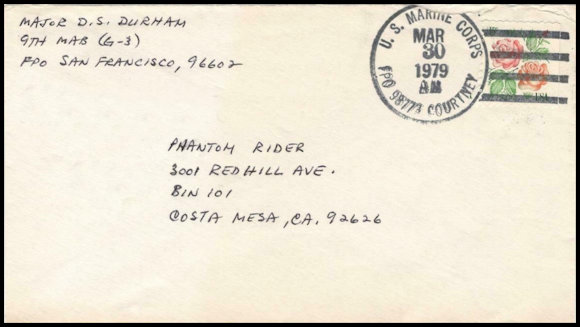 MAJOR D.S. DURHAM
9TH MAB (G-3)
FPO SAN FRANCISCO, 96602
U. S. MARINE CORPS
MAR
30
1979
AM
FPO 98773 COURTNEY
PHANTOM RIDER
3001 REDHILL AVE.
BIN 101
COSTA MESA, CA. 92626